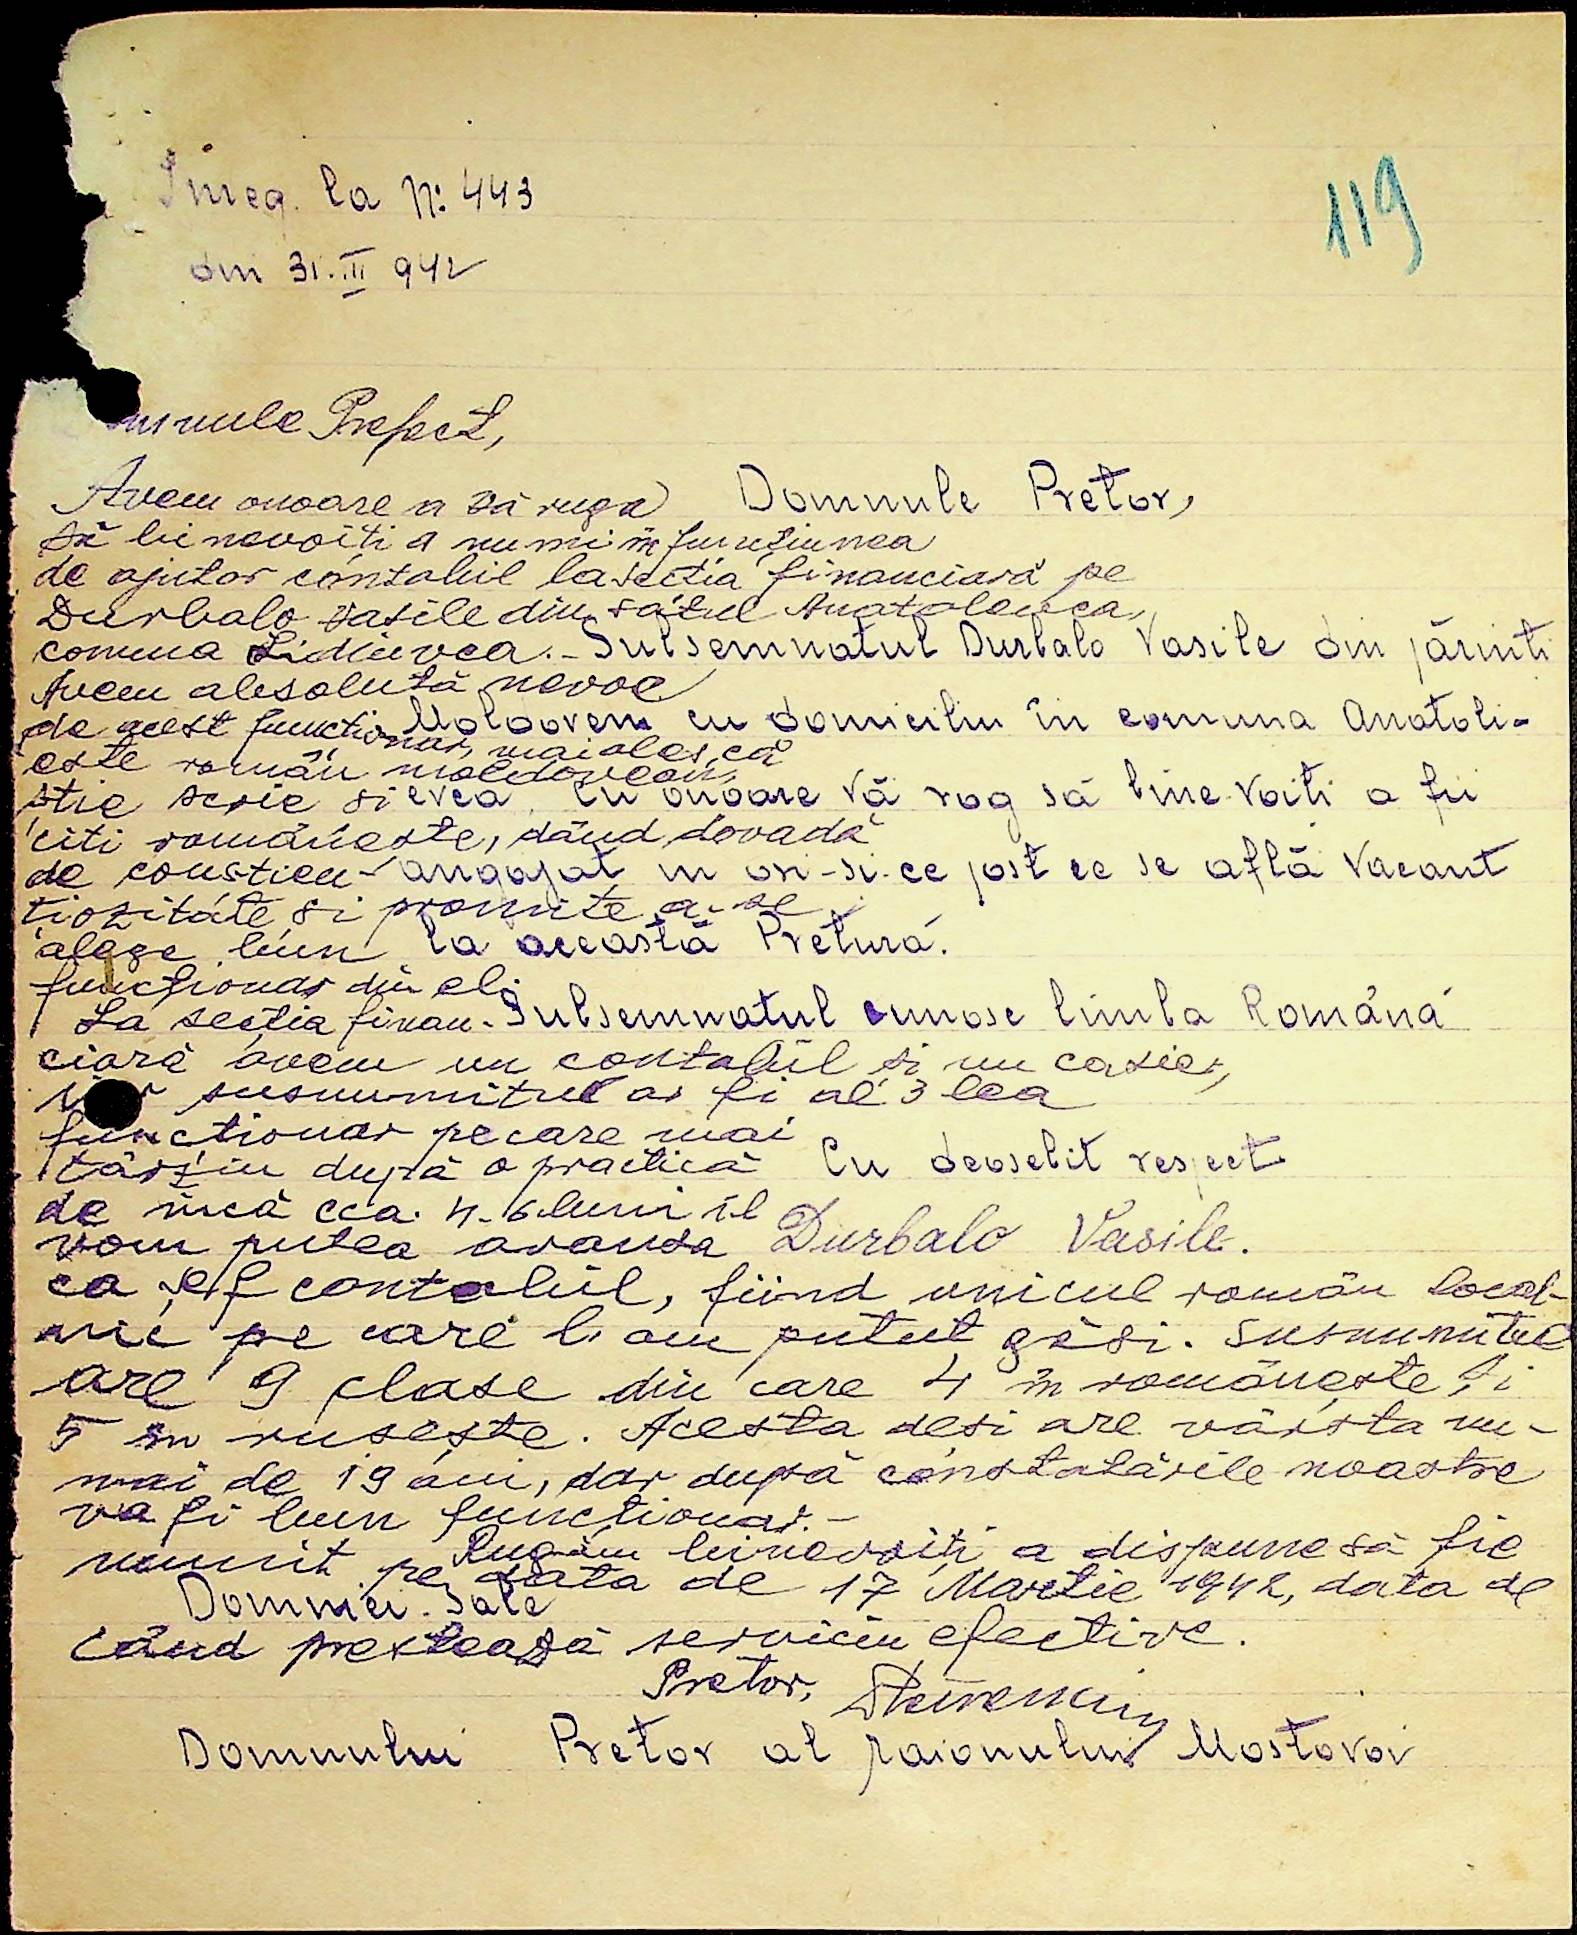 Înreg. la N: 443
din 31.III 942
119
mnule Prefect,
Avem onoare a vă ruga
să binevoiți a numi în funcțiunea
de ajutor contabil la secția financiară pe
Durbalo Vasile din satul Anatoleuca,
comuna Lidiuvca.-
Avem absolută nevoe
de acest funcționar, mai ales că
este român moldovean,
știe scrie și
citi românește, dând dovadă
de conștien-
tiozitate și promite a se
alege bun
funcționar din el.
La secția finan-
ciară avem un contabil și un casier,
iar susnumitul ar fi al 3 lea
funcționar pe care mai
târziu după o practică
de încă cca. 4-6 luni îl
vom putea avansa
ca șef contabil, fiind unicul român local-
nic pe care l-am putut găsi. Susnumitul
are 9 clase din care 4 în românește și
5 în rusește. Acesta deși are vârsta nu-
mai de 19 ani, dar după constatările noastre
va fi bun funcționar.-
Rugăm binevoiți a dispune să fie
numit pe data de 17 Martie 1942, data de
când prestează serviciu efective.
Pretor,
Domnule Pretor,
Subsemnatul Durbalo Vasile din părinți
Moldoveni cu domiciliu în comuna Anatoli-
evca, cu onoare Vă rog să bine-voiți a fii
angajat in ori-si-ce post ce se află vacant
la această Pretură.
Subsemnatul cunosc limba Română
Cu deosebit respect
Durbalo Vasile.
Domniei-Sale
Domnului Pretor al raionului Mostovoi